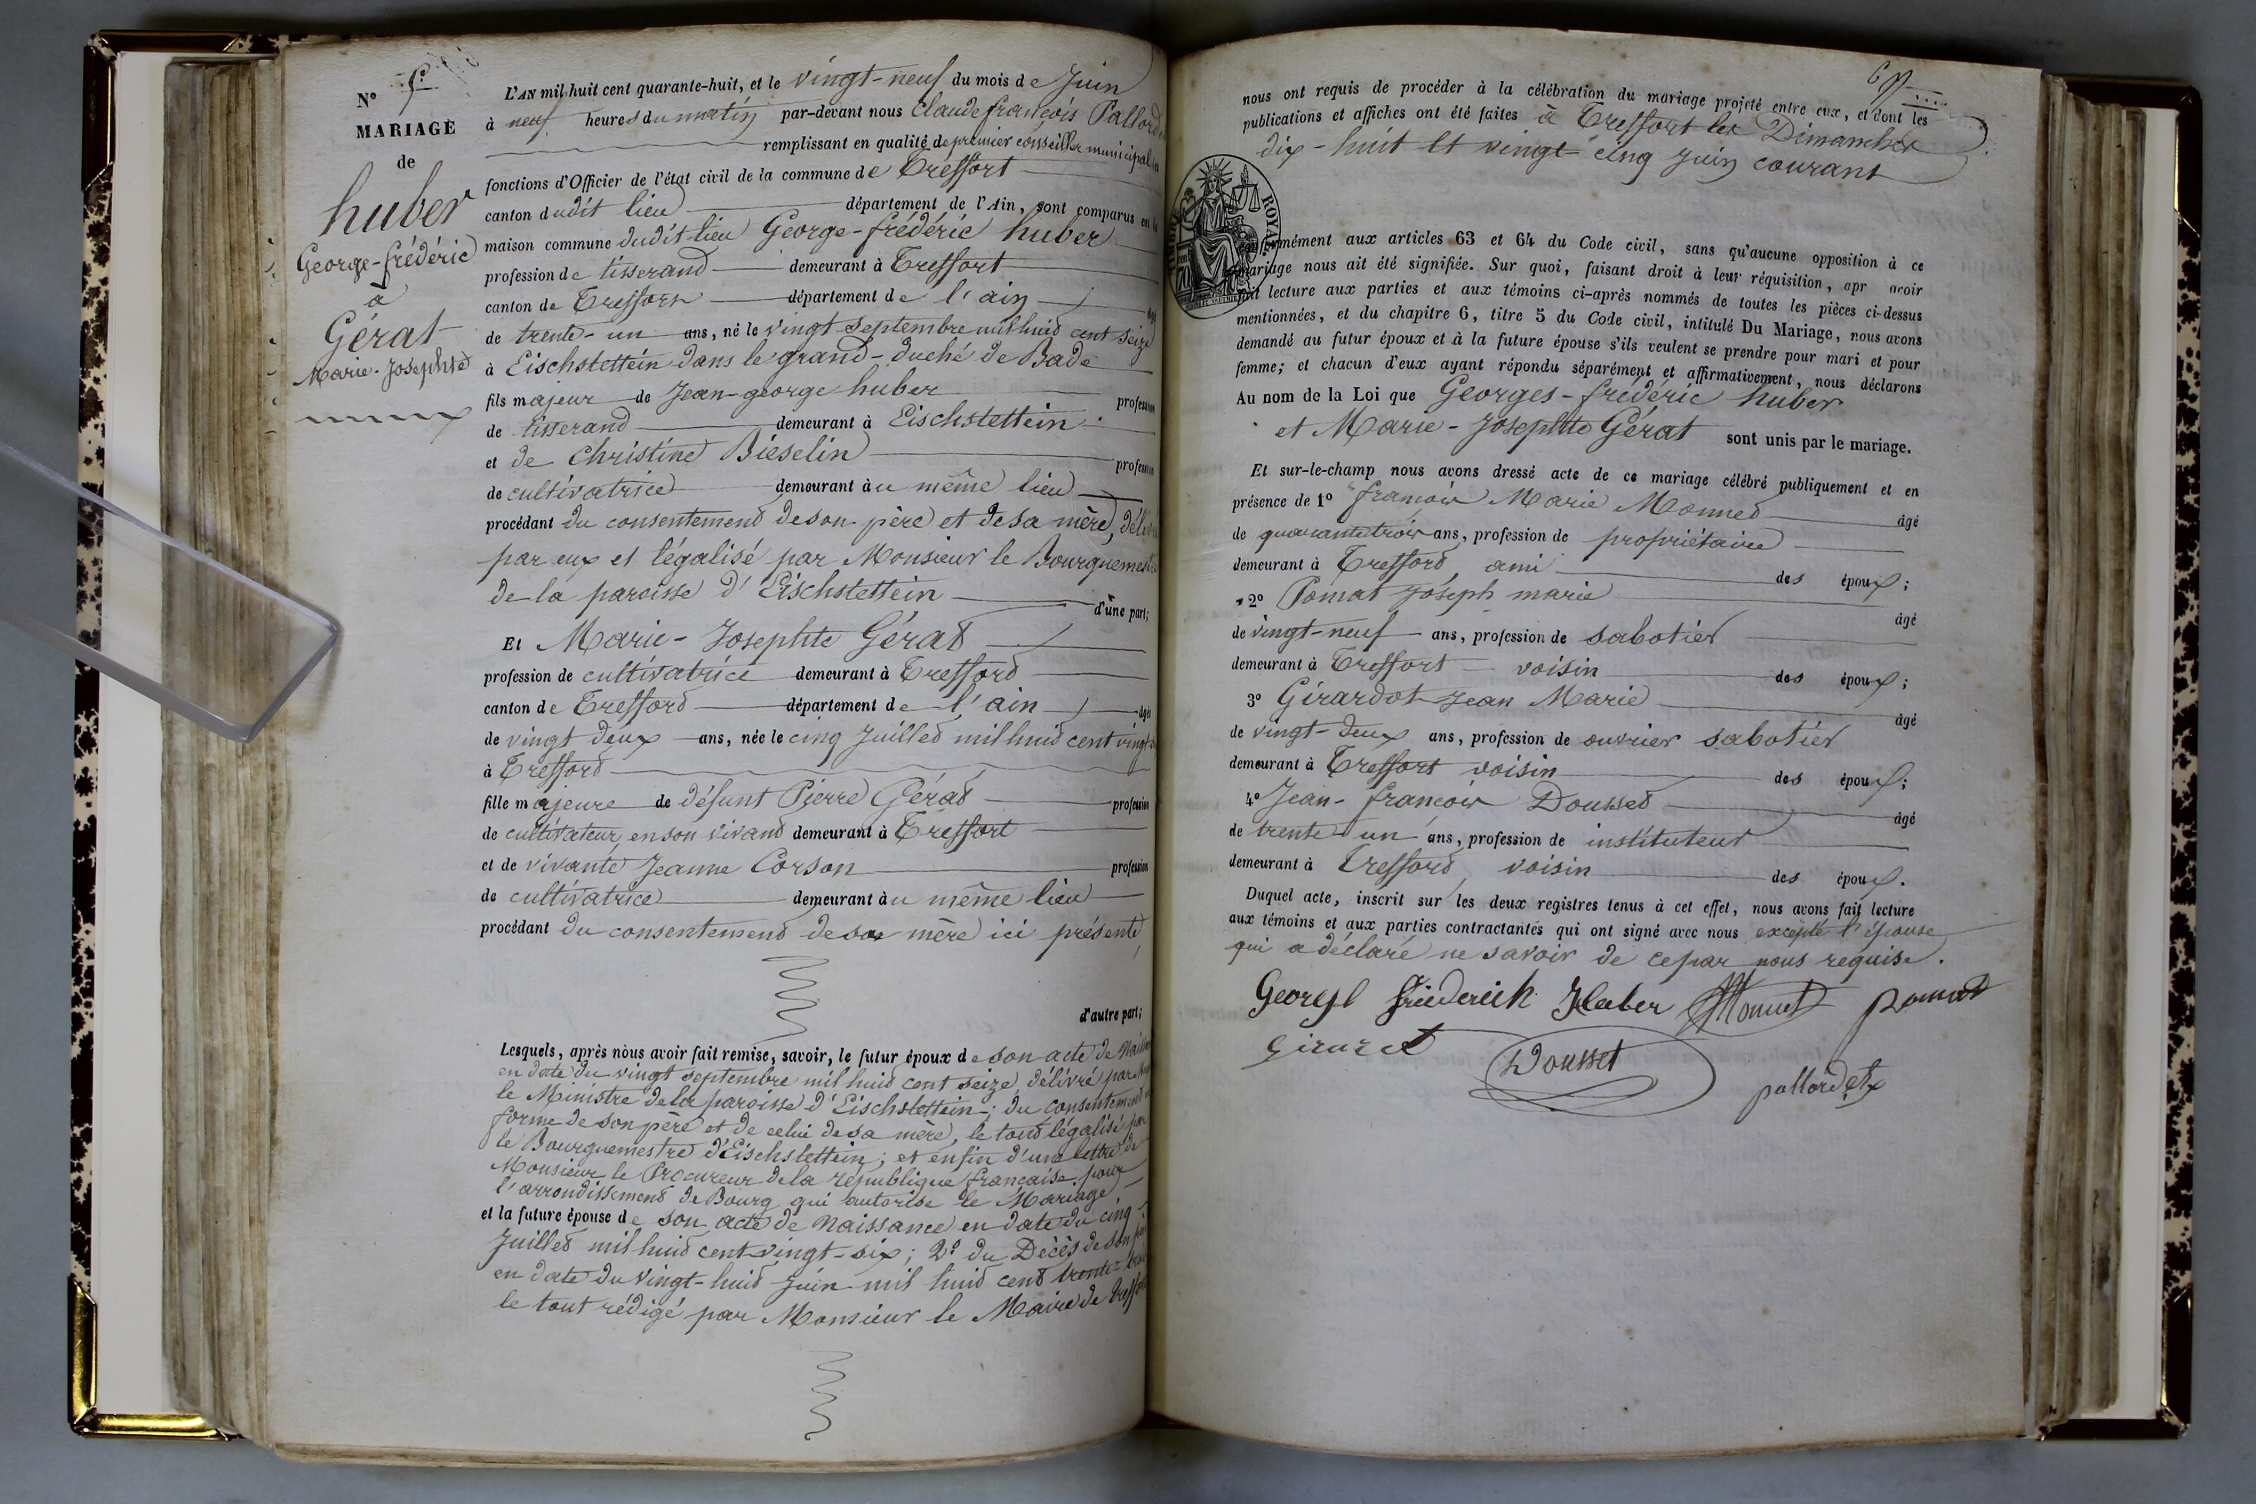 Nº
MARIAGE
de
huber
George-frédéric
à
Gérat
Marie-Josephte
L'AN mil huit cent quarante-huit, et le vingt-neuf du mois de Juin
à neuf heures du matin par-devant nous Claude françois
remplissant en qualité de premier conseiller municipal
fonctions d'Officier de l'état civil de la commune de Treffort
canton dudit lieu département de l'Ain, sont comparus en la
maison commune dudit lieu George-frédéric huber
profession de tisserand demeurant à Treffort
canton de Treffort département de l'ain âgé
de trente-un ans, né le vingt septembre mil huit cent seize
à Eischstettein dans le grand-duché de Bade
fils majeur de Jean-george huber profession
de tisserand demeurant à Eischstettein
et de Christine Bieselin profession
de cultivatrice demeurant au même lieu
procédant du consentement de son père et de sa mère,
par eux et légalisé par Monsieur le Bourguemestre
de la paroisse d'Eischstettein d'une part;
Et Marie-Josephte Gérat
profession de cultivatrice demeurant à Treffort
canton de Treffort département de l'ain âgée
de vingt deux ans, née le cinq Juillet mil huit cent vingt
à Treffort
fille majeure de défunt Pierre Gérat profession
de cultivateur en son vivant demeurant à Treffort
et de vivante Jeanne Corson profession
de cultivatrice demeurant au même lieu
procédant du consentement de sa mère ici présente
d'autre part;
Lesquels, après nous avoir fait remise, savoir, le futur époux de son acte de
en date du vingt septembre mil huit cent seize, délivré par
le Ministre de la paroisse d'Eischstettein; du consentement
forme de son père et de celui de sa mère, le tout légalisé par
le Bourguemestre d'Eischstettein; et enfin d'une lettre de
Monsieur le Procureur de la république française pour
l'arrondissement de Bourg qui autorise le Mariage
et la future épouse de son acte de Naissance en date du cinq
Juillet mil huit cent vingt-six; 2º du Décès de son
en date du vingt-huit Juin mil huit cent trente
le tout rédigé par Monsieur le Maire de Treffort
nous ont requis de procéder à la célébration du mariage projeté entre eux, et dont les
publications et affiches ont été faites à Treffort les Dimanches
dix-huit et vingt cinq Juin courant
TIMBRE ROYAL
conformément aux articles 63 et 64 du Code civil, sans qu'aucune opposition à ce
mariage nous ait été signifiée. Sur quoi, faisant droit à leur réquisition, apr avoir
fait lecture aux parties et aux témoins ci-après nommés de toutes les pièces ci-dessus
mentionnées, et du chapitre 6, titre 5 du Code civil, intitulé Du Mariage, nous avons
demandé au futur époux et à la future épouse s'ils veulent se prendre pour mari et pour
femme; et chacun d'eux ayant répondu séparément et affirmativement, nous déclarons
Au nom de la Loi que Georges-frédéric huber
et Marie-Josephte Gérat sont unis par le mariage.
Et sur-le-champ nous avons dressé acte de ce mariage célébré publiquement et en
présence de 1º françois Marie Monnet âgé
de quarante trois ans, profession de propriétaire
demeurant à Treffort, ami des époux;
2º Pomat Joseph marie âgé
de vingt-neuf ans, profession de sabotier
demeurant à Treffort voisin des époux;
3º Girardot Jean Marie âgé
de vingt-deux ans, profession de ouvrier sabotier
demeurant à Treffort voisin des époux;
4º Jean-françois Dousset âgé
de trente-un ans, profession de instituteur
demeurant à Treffort, voisin des époux.
Duquel acte, inscrit sur les deux registres tenus à cet effet, nous avons fait lecture
aux témoins et aux parties contractantes qui ont signé avec nous excepté l'épouse
qui a déclaré ne savoir de ce par nous requise.
Friederich Huber Monnet Pomat
Dousset